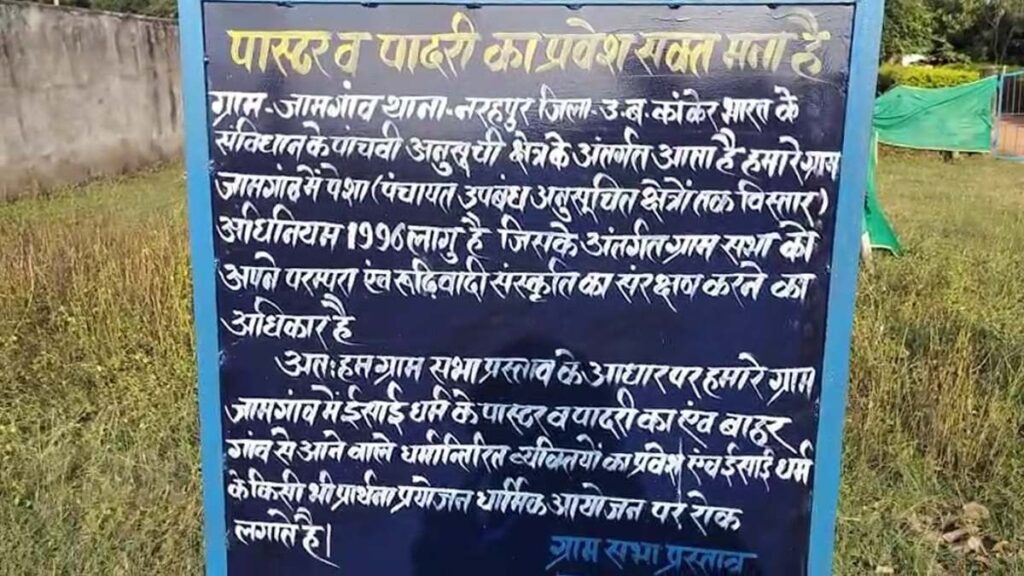 पास्टर व पादरी का प्रवेश सक्त मना है
ग्राम-जामगांव थाना-नरहपुर जिला-उ.ब.कांकेर भारत के
संविधान के पांचवी अनुसूची क्षेत्र के अंतर्गत आता है हमारे ग्राम
जामगांव में पेशा (पंचायत उपबंध अनुसूचित क्षेत्रों तक विस्तार)
अधिनियम 1996 लागु है जिसके अंतर्गत ग्राम सभा को
अपने परम्परा एंव रूढ़िवादी संस्कृति का संरक्षण करने का
अधिकार है
अतः हम ग्राम सभा प्रस्ताव के आधार पर हमारे ग्राम
जामगांव में ईसाई धर्म के पास्टर व पादरी का एंव बाहर
गांव से आने वाले धर्मान्तिरित व्यक्तियों का प्रवेश एंव ईसाई धर्म
के किसी भी प्रार्थना प्रयोजन धार्मिक आयोजन पर रोक
लगाते है।
ग्राम सभा प्रस्ताव